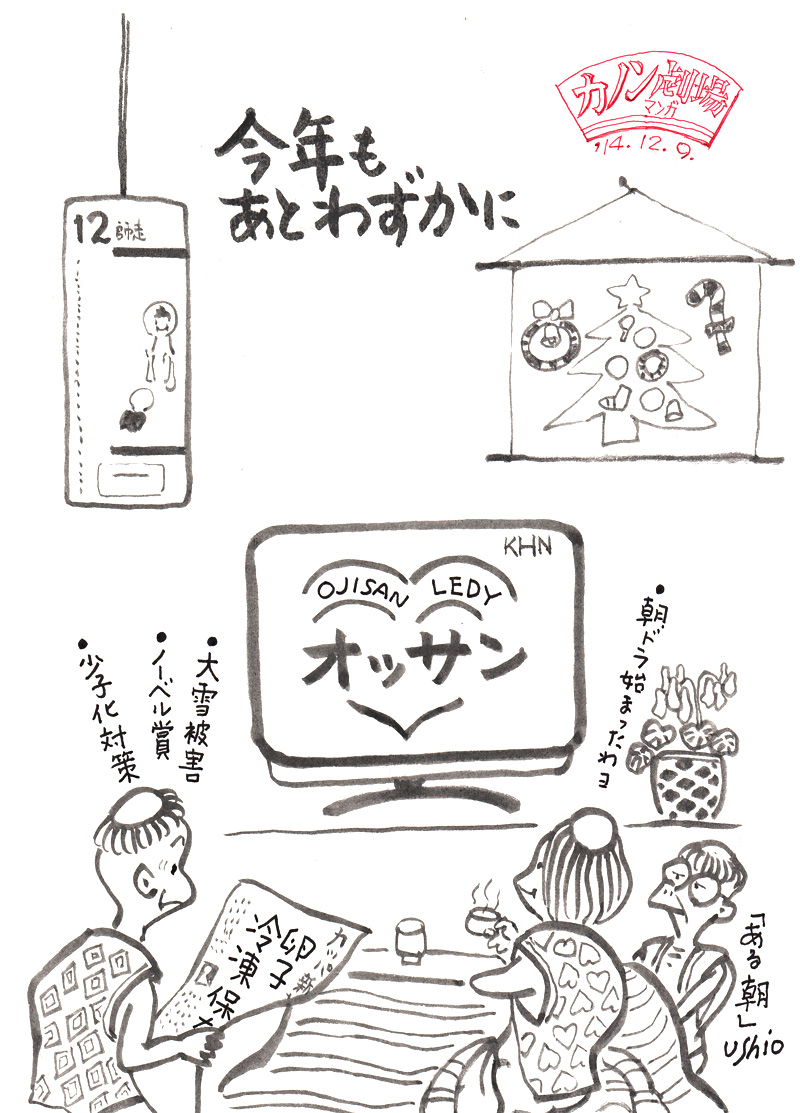 カノン劇場
マンガ
'14.12.9.
今年も
あとわずかに
12 師走
KHN
OJISAN LEDY
オッサン
•朝ドラ始まったわヨ
•大雪被害
•ノーベル賞
•少子化対策
カッパ新
卵子
冷凍保
「ある朝」
ushio